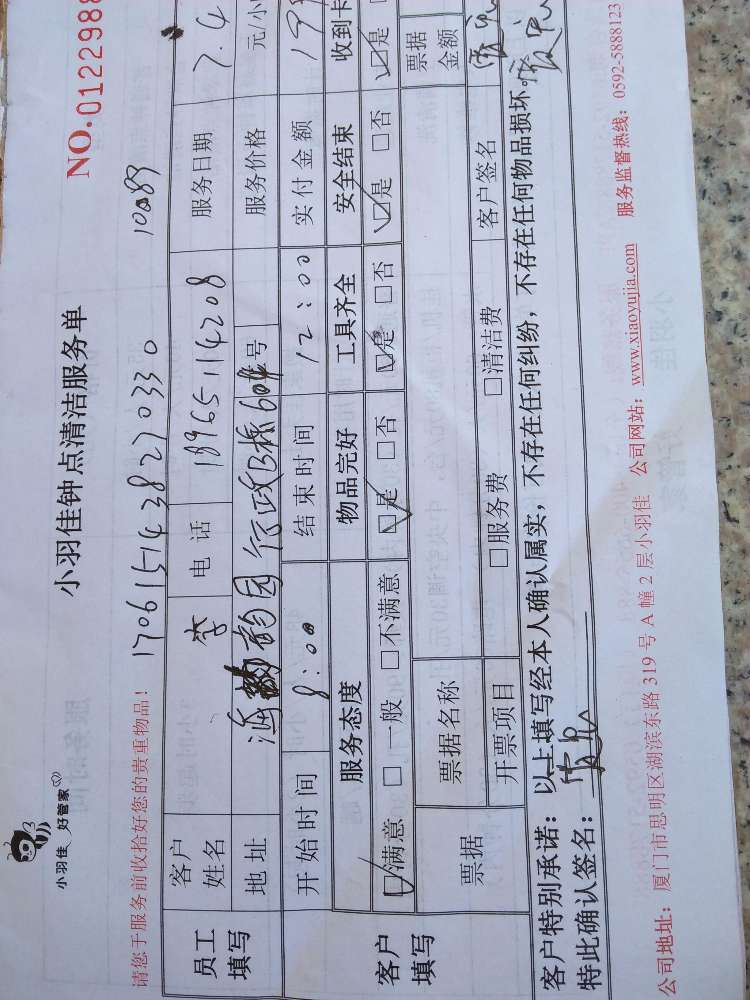 小羽佳 好管家
小羽佳钟点清洁服务单
NO.0122988
请您于服务前收拾好您的贵重物品！ 17061514382270330 10089
员工填写
客户姓名 李 电话 18965114208 服务日期 7.4
地址 韵园行政B栋604号 服务价格 元/小
客户填写
开始时间 8:00 结束时间 12:00 实付金额
服务态度 物品完好 工具齐全 安全结束 收到卡
☑满意 □一般 □不满意 ☑是 □否 ☑是 □否 ☑是 □否 ☑是
票据 票据名称 票据金额
开票项目 □服务费 □清洁费 客户签名
客户特别承诺：以上填写经本人确认属实，不存在任何纠纷，不存在任何物品损坏。
特此确认签名：
公司地址：厦门市思明区湖滨东路 319 号 A 幢 2 层小羽佳 公司网站：www.xiaoyujia.com 服务监督热线：0592-5888123